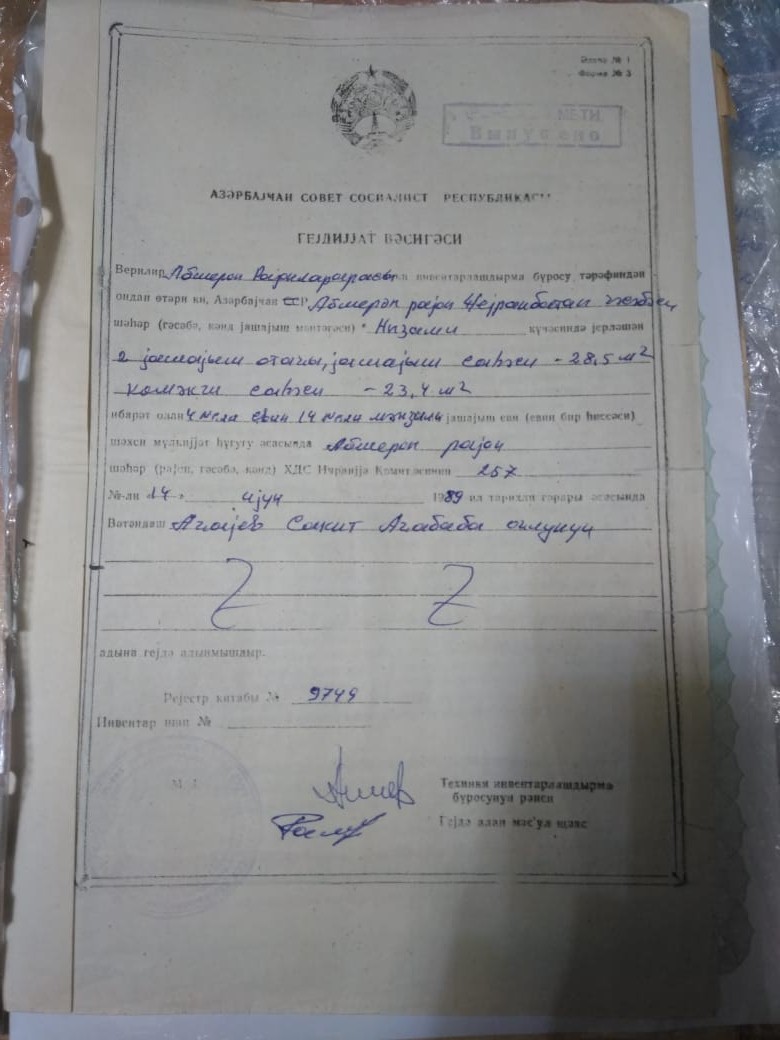 Форма № 3
МЕТИ
Выпущено
АЗӘРБАЈЧАН СОВЕТ СОСИАЛИСТ РЕСПУБЛИКАСЫ
ГЕЈДИЈЈАТ ВӘСИГӘСИ
Верилир Абшерон инвентарлашдырма бүросу тәрәфиндән
ондан өтәри ки, Азәрбајҹан ССР Абшерон рајон
шәһәр (гәсәбә, кәнд јашајыш мәнтәгәси) Низами күчәсиндә јерләшән
2 јашајыш отаглы, јашајыш саһәси - 28,5 м²
көмәкчи саһәси - 23,4 м²
ибарәт олан 4 №-ли евин 14 №-ли мәнзили јашајыш еви (евин бир һиссәси)
шәхси мүлкијјәт һүгугу әсасында Абшерон рајон
шәһәр (рајон, гәсәбә, кәнд) ХДС Иҹраијјә Комитәсинин 257
№-ли «14» ијун 1989 ил тарихли гәрары әсасында
Вәтәндаш Ағајев Ағабаба оғлунун
адына гејдә алынмышдыр.
Рејестр китабы № 9749
Инвентар иши №
Техники инвентарлашдырма
бүросунун рәиси
Гејдә алан мәс'ул шәхс